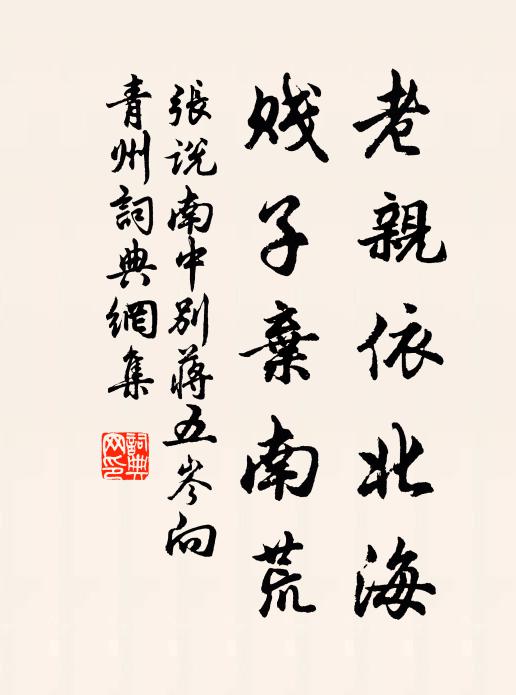 老親依北海
賤子棄南荒
張說南中別蔣五岑向
青州詞典網集
詞典网印